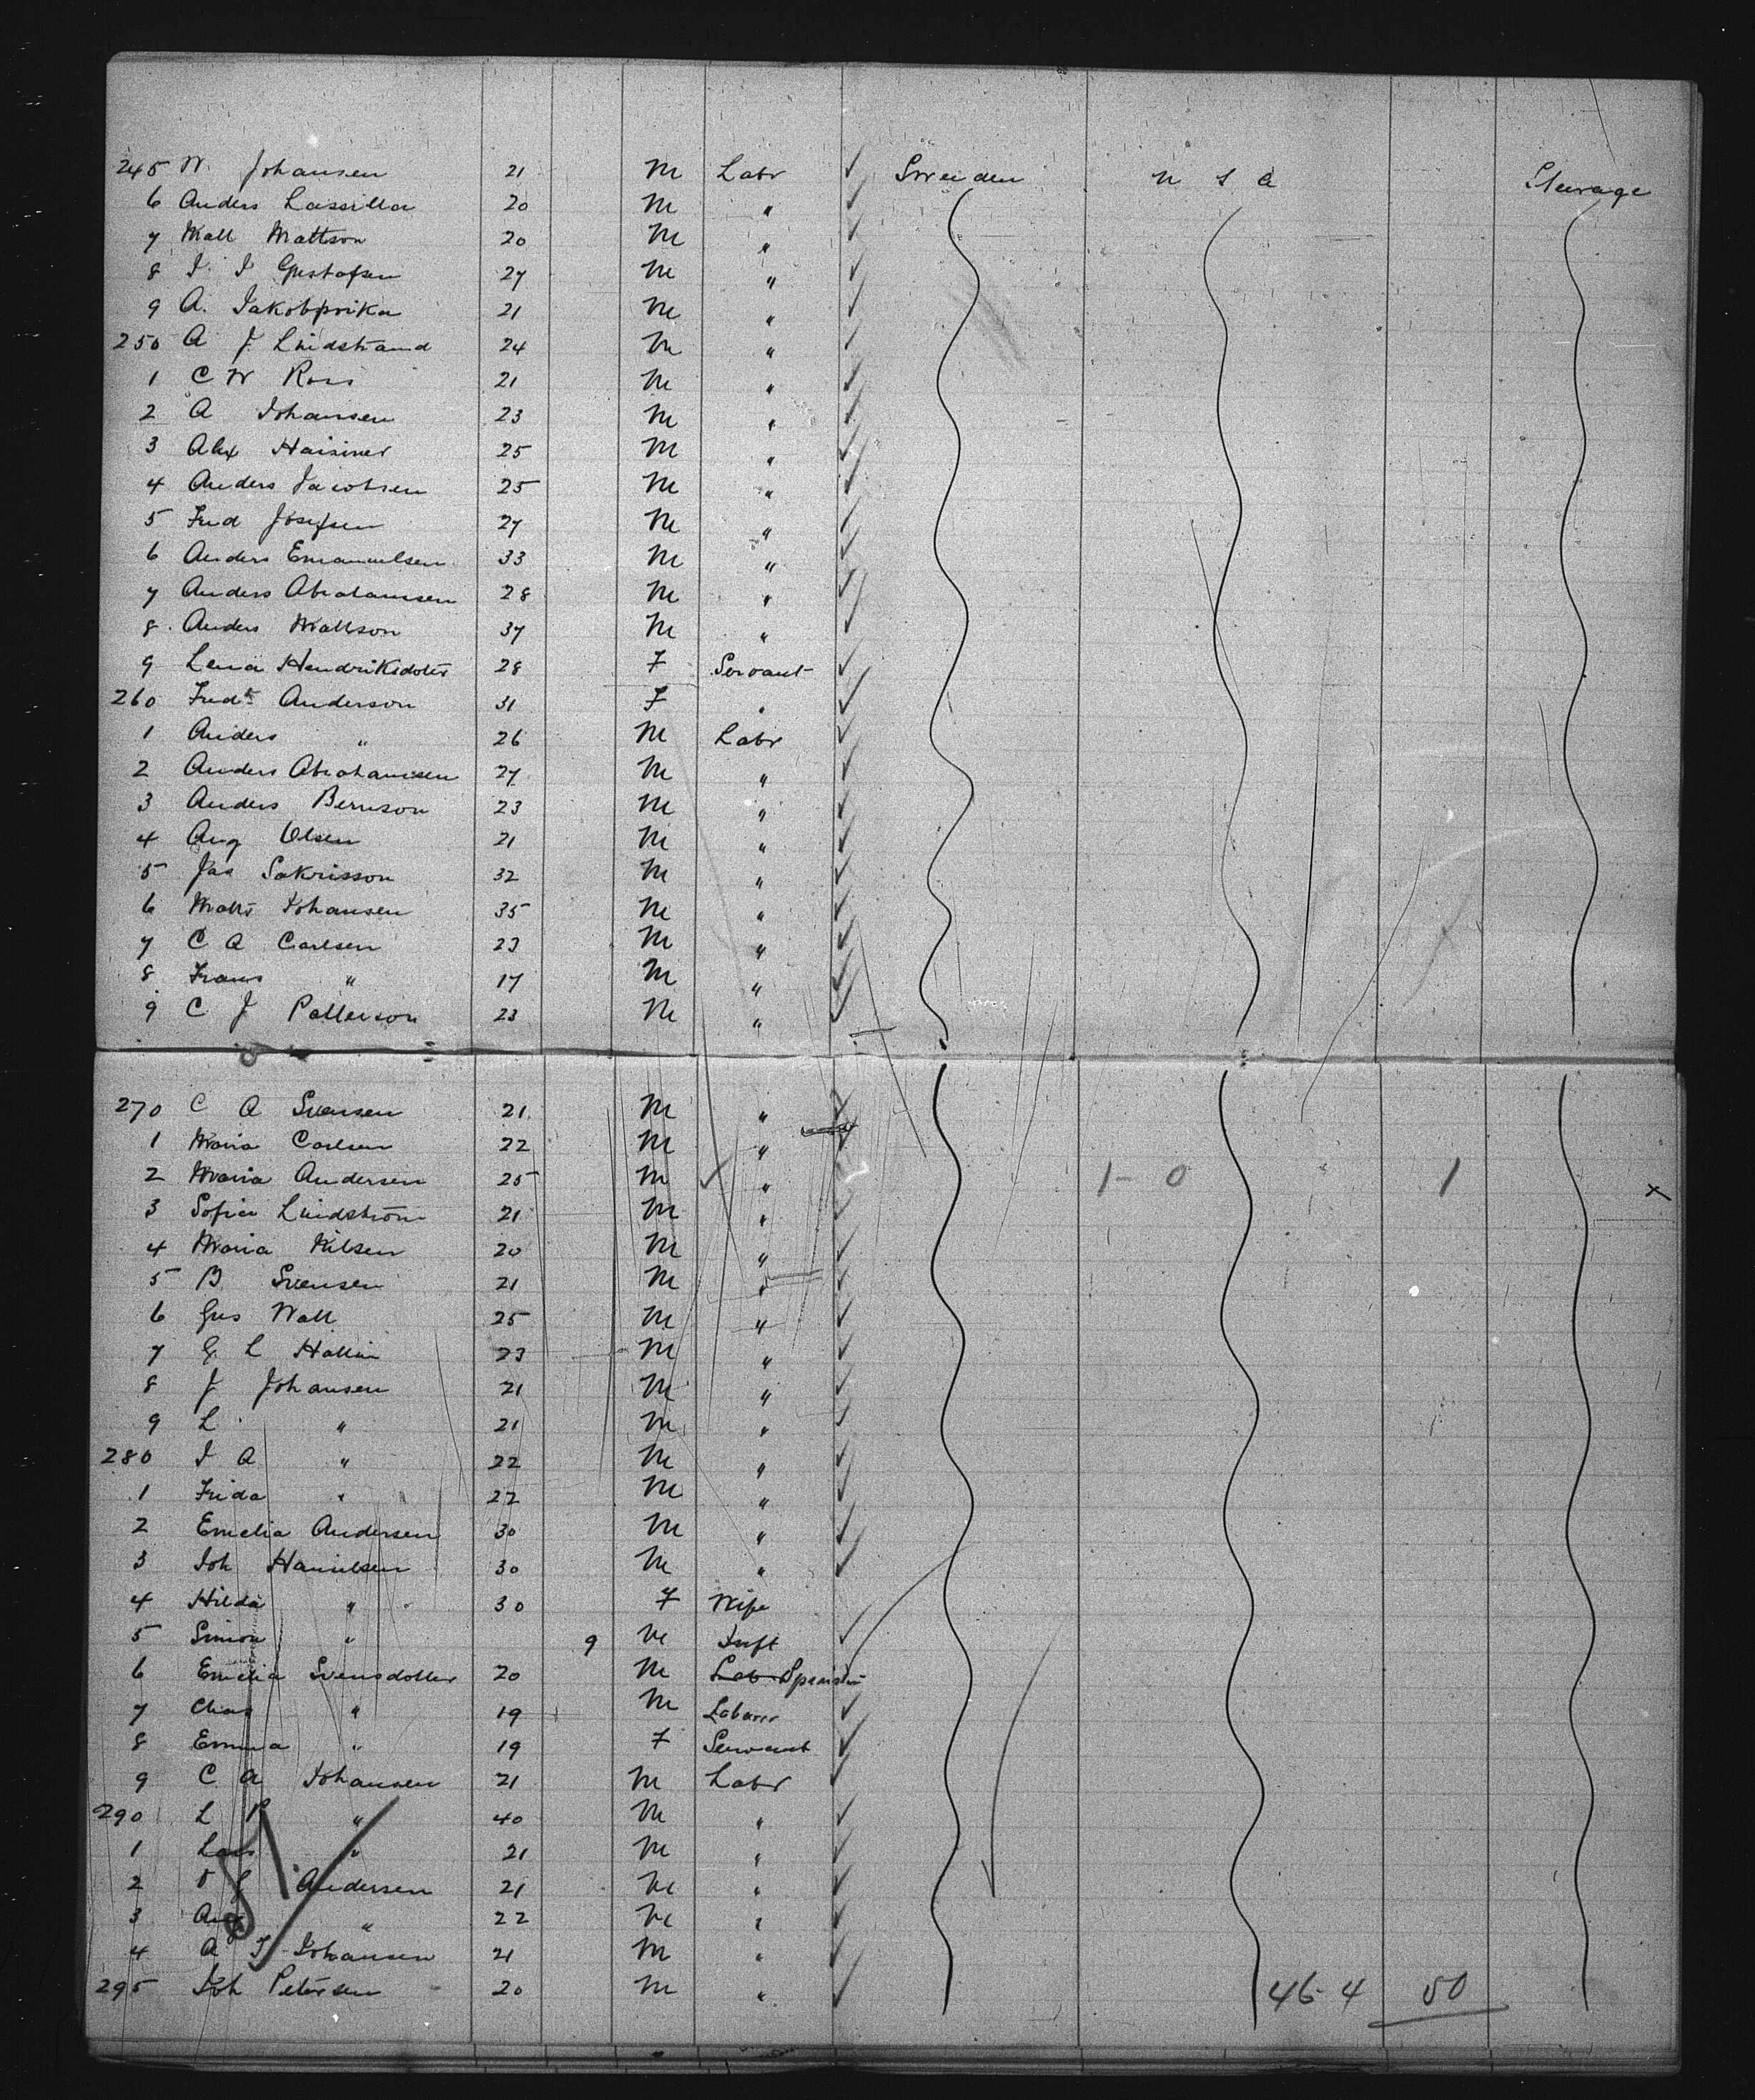 245 W. Johansen 21 M Labr ✓ Sweeden U S A Steerage
6 Anders Lassilla 20 M " ✓
7 Matt Mattson 20 M " ✓
8 I. I Gustafsen 27 M " ✓
9 A. Jakobprika 21 M " ✓
250 A J. Lindstrand 24 M " ✓
1 C W Ross 21 M " ✓
2 A Johansen 23 M " ✓
3 Alex Haisiner 25 M " ✓
4 Anders Jacobsen 25 M " ✓
5 Fred Josefsen 27 M " ✓
6 Anders Emanuelsen 33 M " ✓
7 Anders Abrahamsen 28 M " ✓
8 Anders Mattson 37 M " ✓
9 Lena Hendriksdoter 28 F Servant ✓
260 Fredk Anderson 31 F " ✓
1 Anders " 26 M Labr ✓
2 Anders Abrahamsen 27 M " ✓
3 Anders Bernson 23 M " ✓
4 Aug Olsen 21 M " ✓
5 Jas Sakrisson 32 M " ✓
6 Matts Johansen 35 M " ✓
7 C A Carlsen 23 M " ✓
8 Frans " 17 M " ✓
9 C J Patterson 23 M " ✓
270 C A Svensen 21 M " ✓
1 Maria Carlsen 22 M " ✓
2 Maria Andersen 25 M " ✓ 1 - 0 1 x
3 Sofia Lindstrom 21 M " ✓
4 Maria Nilsen 20 M " ✓
5 B Svensen 21 M " ✓
6 Gus Wall 25 M " ✓
7 G. L Hallin 23 M " ✓
8 J Johansen 21 M " ✓
9 L " 21 M " ✓
280 I A " 22 M " ✓
1 Frida " 22 M " ✓
2 Emelia Andersen 30 M " ✓
3 Joh Hanielsen 30 M " ✓
4 Hilda " 30 F Wife
5 Simon " 9 M Inft ✓
6 Emelia Svensdotter 20 M Lab Spinster
7 Chas " 19 M Laborer ✓
8 Emma " 19 F Servant ✓
9 C A Johansen 21 M Labr ✓
290 L P " 40 M " ✓
1 Lars " 21 M " ✓
2 Andersen 21 M " ✓
3 Aug " 22 M " ✓
4 A J Johansen 21 M " ✓
295 Joh Petersen 20 M " ✓ 46-4 50